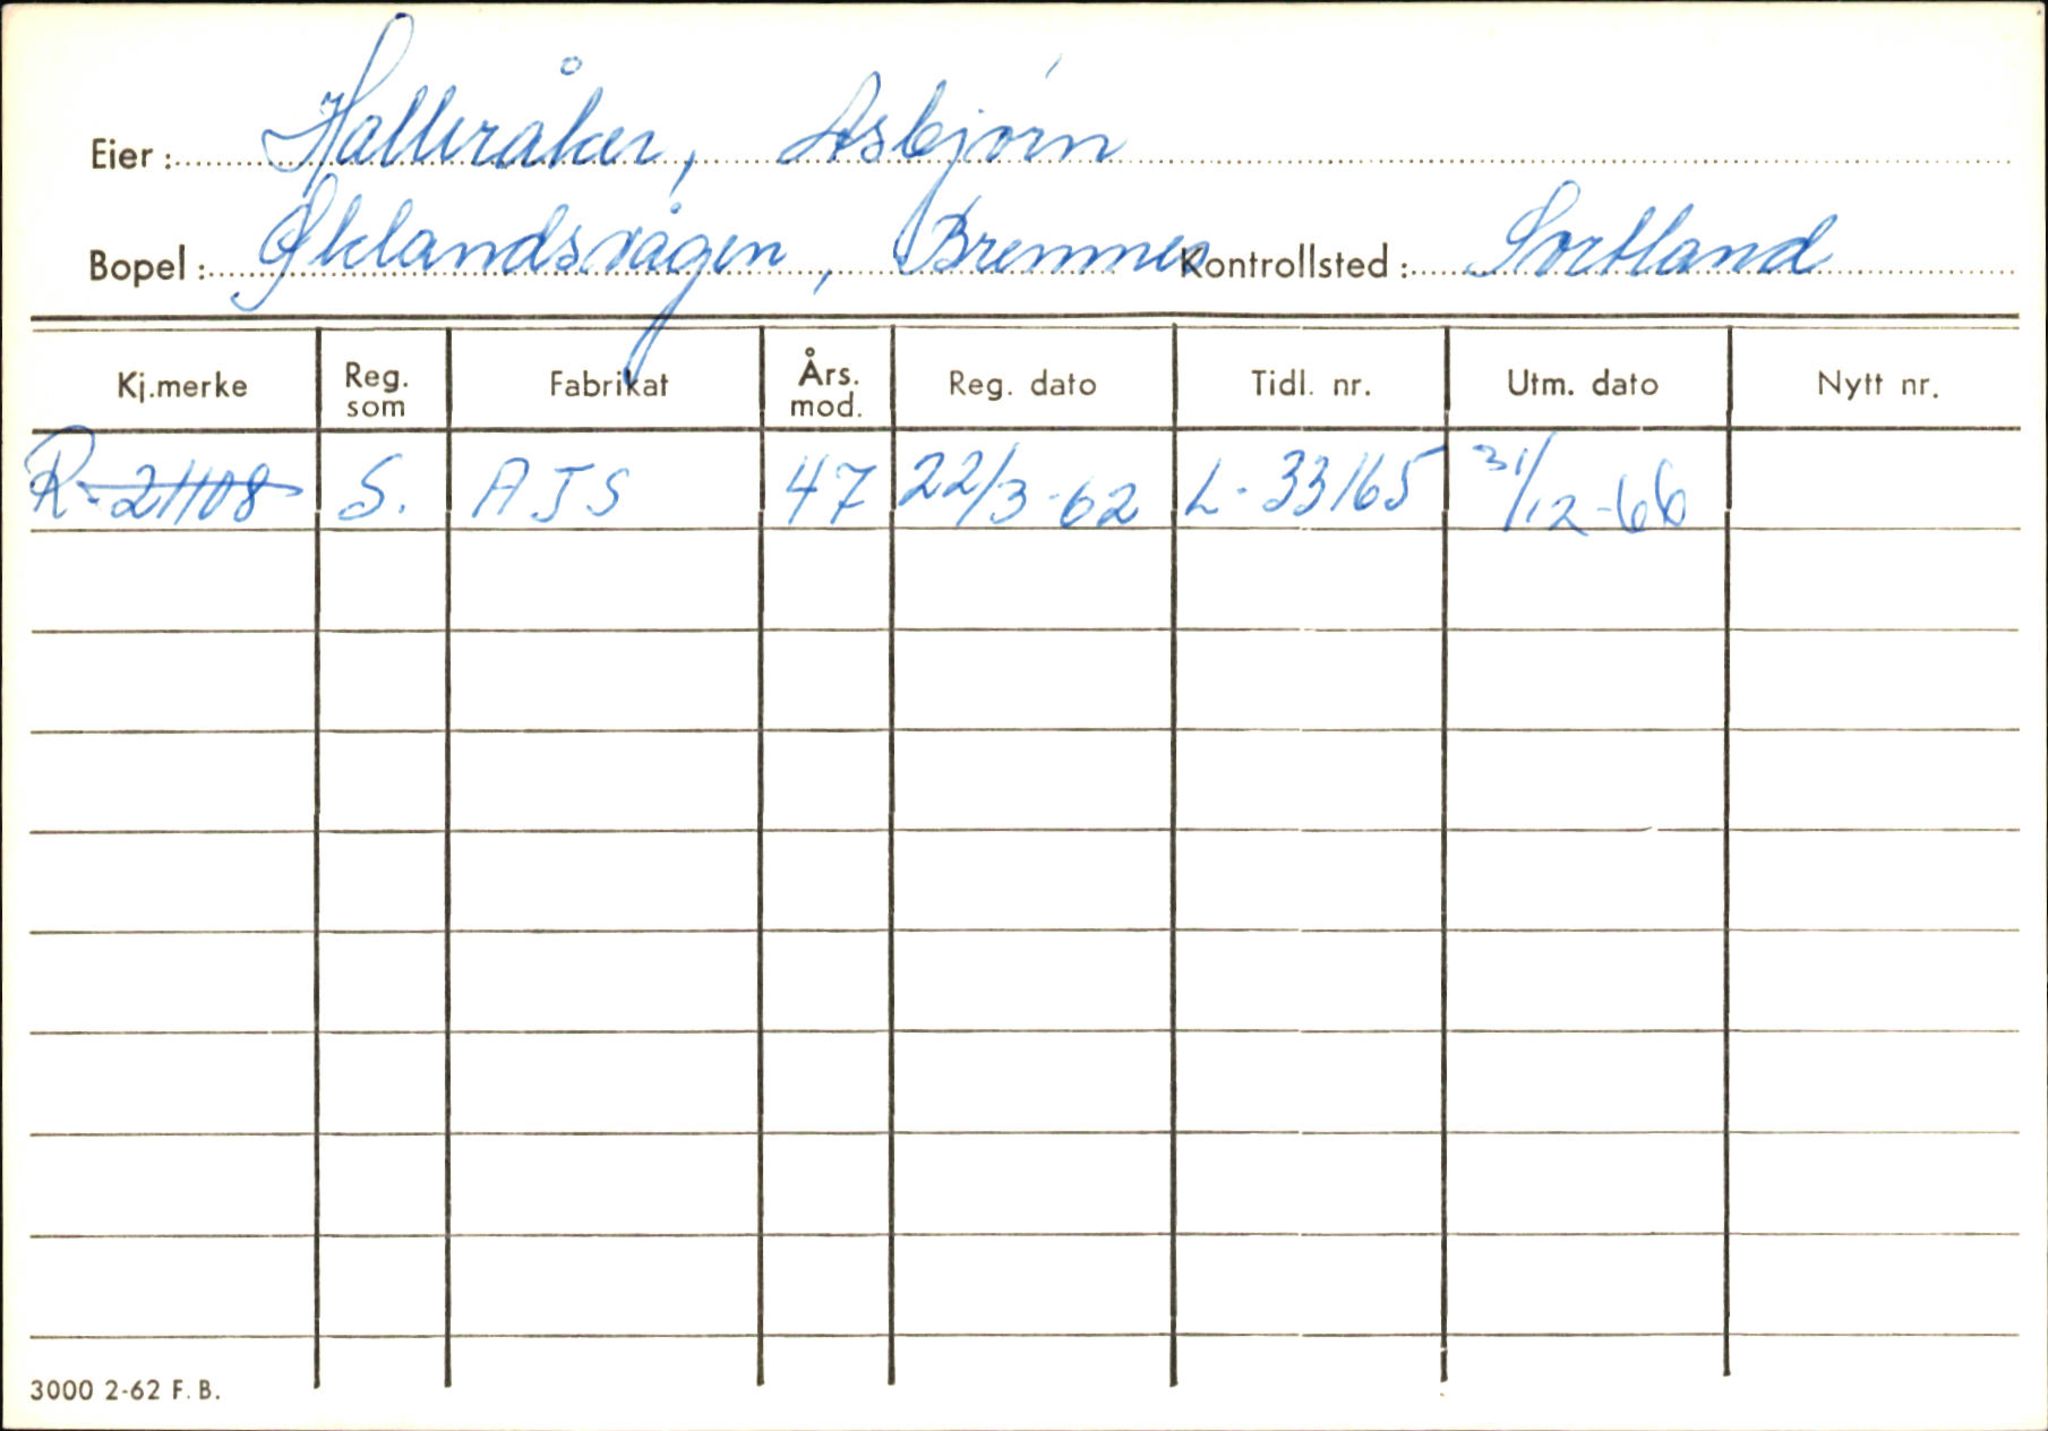 Eier: Halleråker, Asbjørn
Bopel: Øklandsvågen, Bremnes Kontrollsted: Sortland
Kj.merke Reg. som Fabrikat Års. mod. Reg. dato Tidl. nr. Utm. dato Nytt nr.
R-21108 S. AJS 47 22/3-62 L-33165 31/12-66
3000 2-62 F.B.